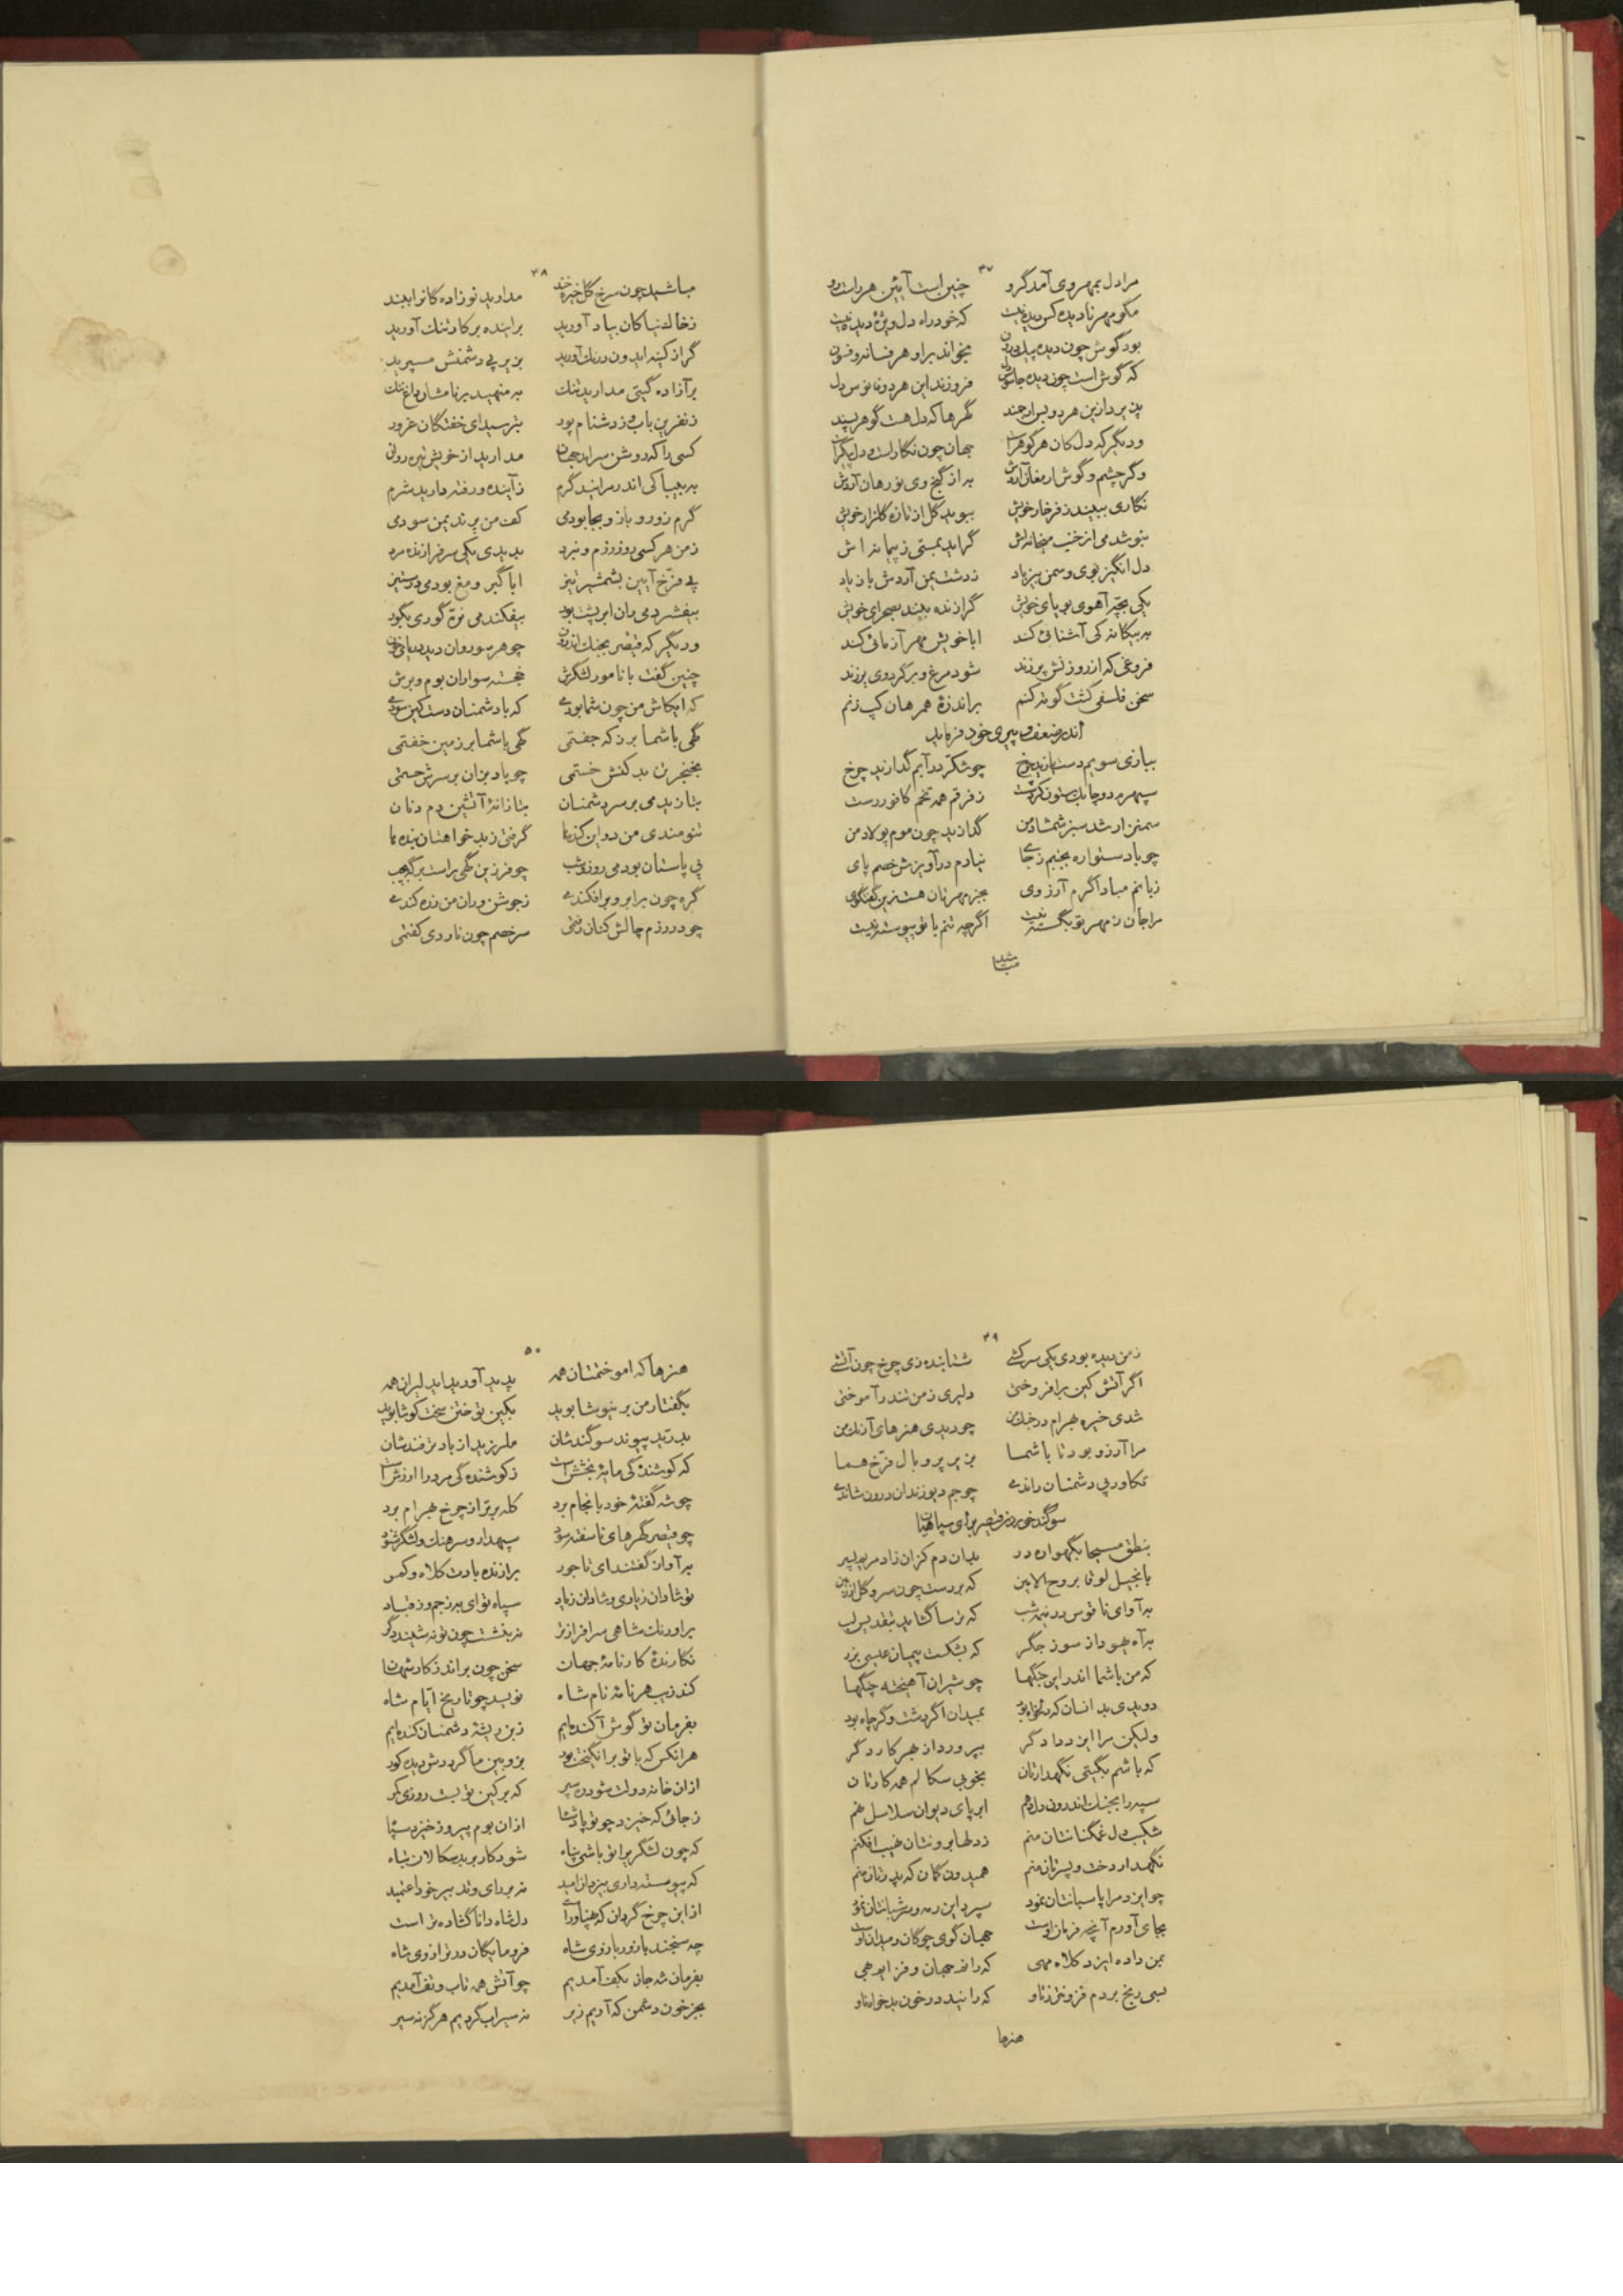 ۴۷
مرا دل بمهر وی آمد گرو چنین است آیین هر راست رو
مگو مهر نادیده کس دیده نیست که خود راه دل ویژه دیده نیست
بود گوش چون دیده بخواند براو هر فسانه و فسون
که گوش است چون دیده فروزند این هر دو فانوس دل
هر دو گهرها که دل هست گوهر پسند
و دیگر که دل کان هر گوهر است جهان چون نگار است و دل
وگر چشم و گوش ارمغان آردش به از گنج وی نورهان آردش
نگاری ببیند ز فرخار خویش ببوید گل از تازه گلزار خویش
بنوشد می از خنب میخانه‌اش گراید بمستی ز پیمانه اش
دل انگیز بوی و سمن بیز باد ز دشت یمن آردش باز یاد
یکی بچه آهوی پویای خویش گرازنده بیند بصحرای خویش
به بیگانه کی آشنائی کند ابا خویش مهر آزمائی کند
فروغی که از روزنش بر زند شود مرغ و بر گرد وی پر زند
سخن فلسفی گشت کوته کنم براندازه همرهان کپ زنم
اندر ضعف و پیری خود فرماید
ببازی سویم دست یازید چرخ چو شکر در آبم گدازید چرخ
ز فرقم همه تخم کافور رست
سمنزار شد سبز شمشاد من گدازید چون موم پولاد من
چو باد ستواره بجنبم ز جای نیارم در آویزش خصم پای
زبانم مباد اگرم آرزوی بجز مهرتان هست زین گفتگوی
مرا جان ز مهر تو بگسسته نیست اگرچه تنم با تو پیوسته نیست
مباشید
۴۸
مباشید چون سرخ گل خیره خند مدارید نوزادگانرا ببند
ز خاک نیاکان بیاد آورید براینده بر کار تنگ آورید
گر از کینه ایدون درنگ آورید بزیر پی دشمنش مسپرید
بر آزاده گیتی مدارید تنگ به منهید بر نامشان داغ ننگ
ز نفرین باب و ز دشنام پور بترسید ای خفتگان غرور
کسی را که روشن سراید جهان مدارید از خویش تیره روان
به بیباکی اندر مرانید گرم ز آینده و رفته دارید شرم
گرم زور و بازو بجا بودمی کف من پرند یمن سودمی
ز من هر کسی روز رزم و نبرد بدیدی یکی سرفرازنده مرد
پی فرخ آیین بشمشیر تیز ابا گبر و مغ بودمی در ستیز
بیفشردمی ران ابر پشت بور بیفکندمی نره گوری بگور
و دیگر که قیصر بجنگ اندرون چو هر سو روان دید دریای خون
چنین گفت با نامور لشکرش خجسته سواران بوم و برش
که ایکاش من چون شما بودمی که با دشمنان دست کین سودمی
گهی با شما بر زکه جفتی گهی با شما بر زمین خفتمی
بخنجر تن بدکنش خستمی چو باد بزان بر سرش جستمی
بتازید می بر سر دشمنان بتازانه آتشین دم دنان
تنومندی من در این کندپا گرفتی ز بدخواهتان بنده ما
پی پاستان بودمی روز و شب چو فرزین گهی راست
گره چون برابر و برافکندمی ز جوش دران من زره کندمی
چو در رزم چالش کنان رفتمی سر خصم چون ناردی کفتمی
۴۹
ز من دیده بودی یکی سرکشی شتابنده زی چرخ چون آتشی
اگر آتش کین برافروختی دلیری ز من تندر آموختی
شدی خیره بهرام در جنگ من چو دیدی هنرهای آونگ من
مرا آرزو بود تا با شما بزیر پر و بال فرخ هما
تکاور پی دشمنان راندمی چو جم دیو زندان درون شاندمی
سوگند خوردن قیصر برای سپاهیان
بنطق مسیحا بگهواره در بدان دم کزان زاد مریم پسر
بانجیل لوقا بروح الامین که بر رست چون سرو گل از زمین
به آوای ناقوس در نیمه شب که ترسا گشاید بتقدیس لب
بر آه یهودا ز سوز جگر که بشکست پیمان عیسی بزر
که من با شما اندر این جنگها چو شیران آهیخته چنگها
دویدی بدانسان که دلخواه بود بمیدان اگر دشت و گر چاه بود
ولیکن مرا ایزد دادگر بپرورد از بهر کار دگر
که باشم بگیتی نگهدارتان بخوبی سگالم همه کارتان
سپه را بجنگ اندرون دل دهم ابر پای دیوان سلاسل نهم
شکیب دل غمگنانتان منم ز دلها برونشان نهیب افکنم
نگهدار دخت و پسرتان منم همیدون کمان که بدرتان منم
چو ایزد مرا پاسبانتان نمود سپرد این رمه و شبانتان نمود
بجای آورم آنچه فرمان اوست جهان گوی چوگان و میدان اوست
بمن داده ایزد کلاه مهی که رانم جهان و فز ایم بهی
بسی رنج بردم فزونتر ز تاو که رانید در خون بدخواه ناو
هنرها
۵۰
هنرها که آموختمتان همه پدید آورید ای دلیران همه
بگفتار من بر نیوشا بوید بکین توختن سخت کوشا بوید
بدرید پیوند سوگندشان ملرزید از باد ترفندشان
که کوشندگی مایه بخشش است ز کوشندگی مرد را ارزش است
چو شه گفته خود بانجام برد کله برتر از چرخ بهرام برد
چو قیصر گهرهای ناسفته سود سپهدار و سرهنگ و لشکر شنود
به آواز گفتند ای تاجور برازنده بادت کلاه و کمر
تو شادان زیادی و شادان زیاد سپاه تو ای به ز جم و ز قباد
بر اورنگ شاهی سرافرازتر نه بنشست چون تو نه شیند دگر
نگارنده کارنامه جهان سخن چون براند ز کار شهان
کند زیب هر نامه نام شاه نویسد چو تاریخ ایام شاه
بفرمان تو گوش آکنده‌ایم ز بن ریشه دشمنان کنده‌ایم
هر آنکس که با تو برانگیخت بود بزوبین ما گردش دیده کور
از آن خانه دولت شود که بر کین تو بست روزی کمر
ز جائی که خیزد چو تو پادشا از آن بوم پیروز خیزد سپا
که چون لشکر را تو باشی پناه شود کار بدسگالان تباه
که پیوسته داری بیزدان امید نه بر رای و تدبیر خود اعتمید
از این چرخ گردان که پهناورا است دل شاه دانا گشاده‌تر است
چه سنجند با زور بازوی شاه فرومایگان در ترازوی شاه
بفرمان شه جان بکف آمدیم چو آتش همه تاب و تف آمدیم
بجز خون دشمن که آریم زیر نه سیراب گردیم هرگز نه سیر